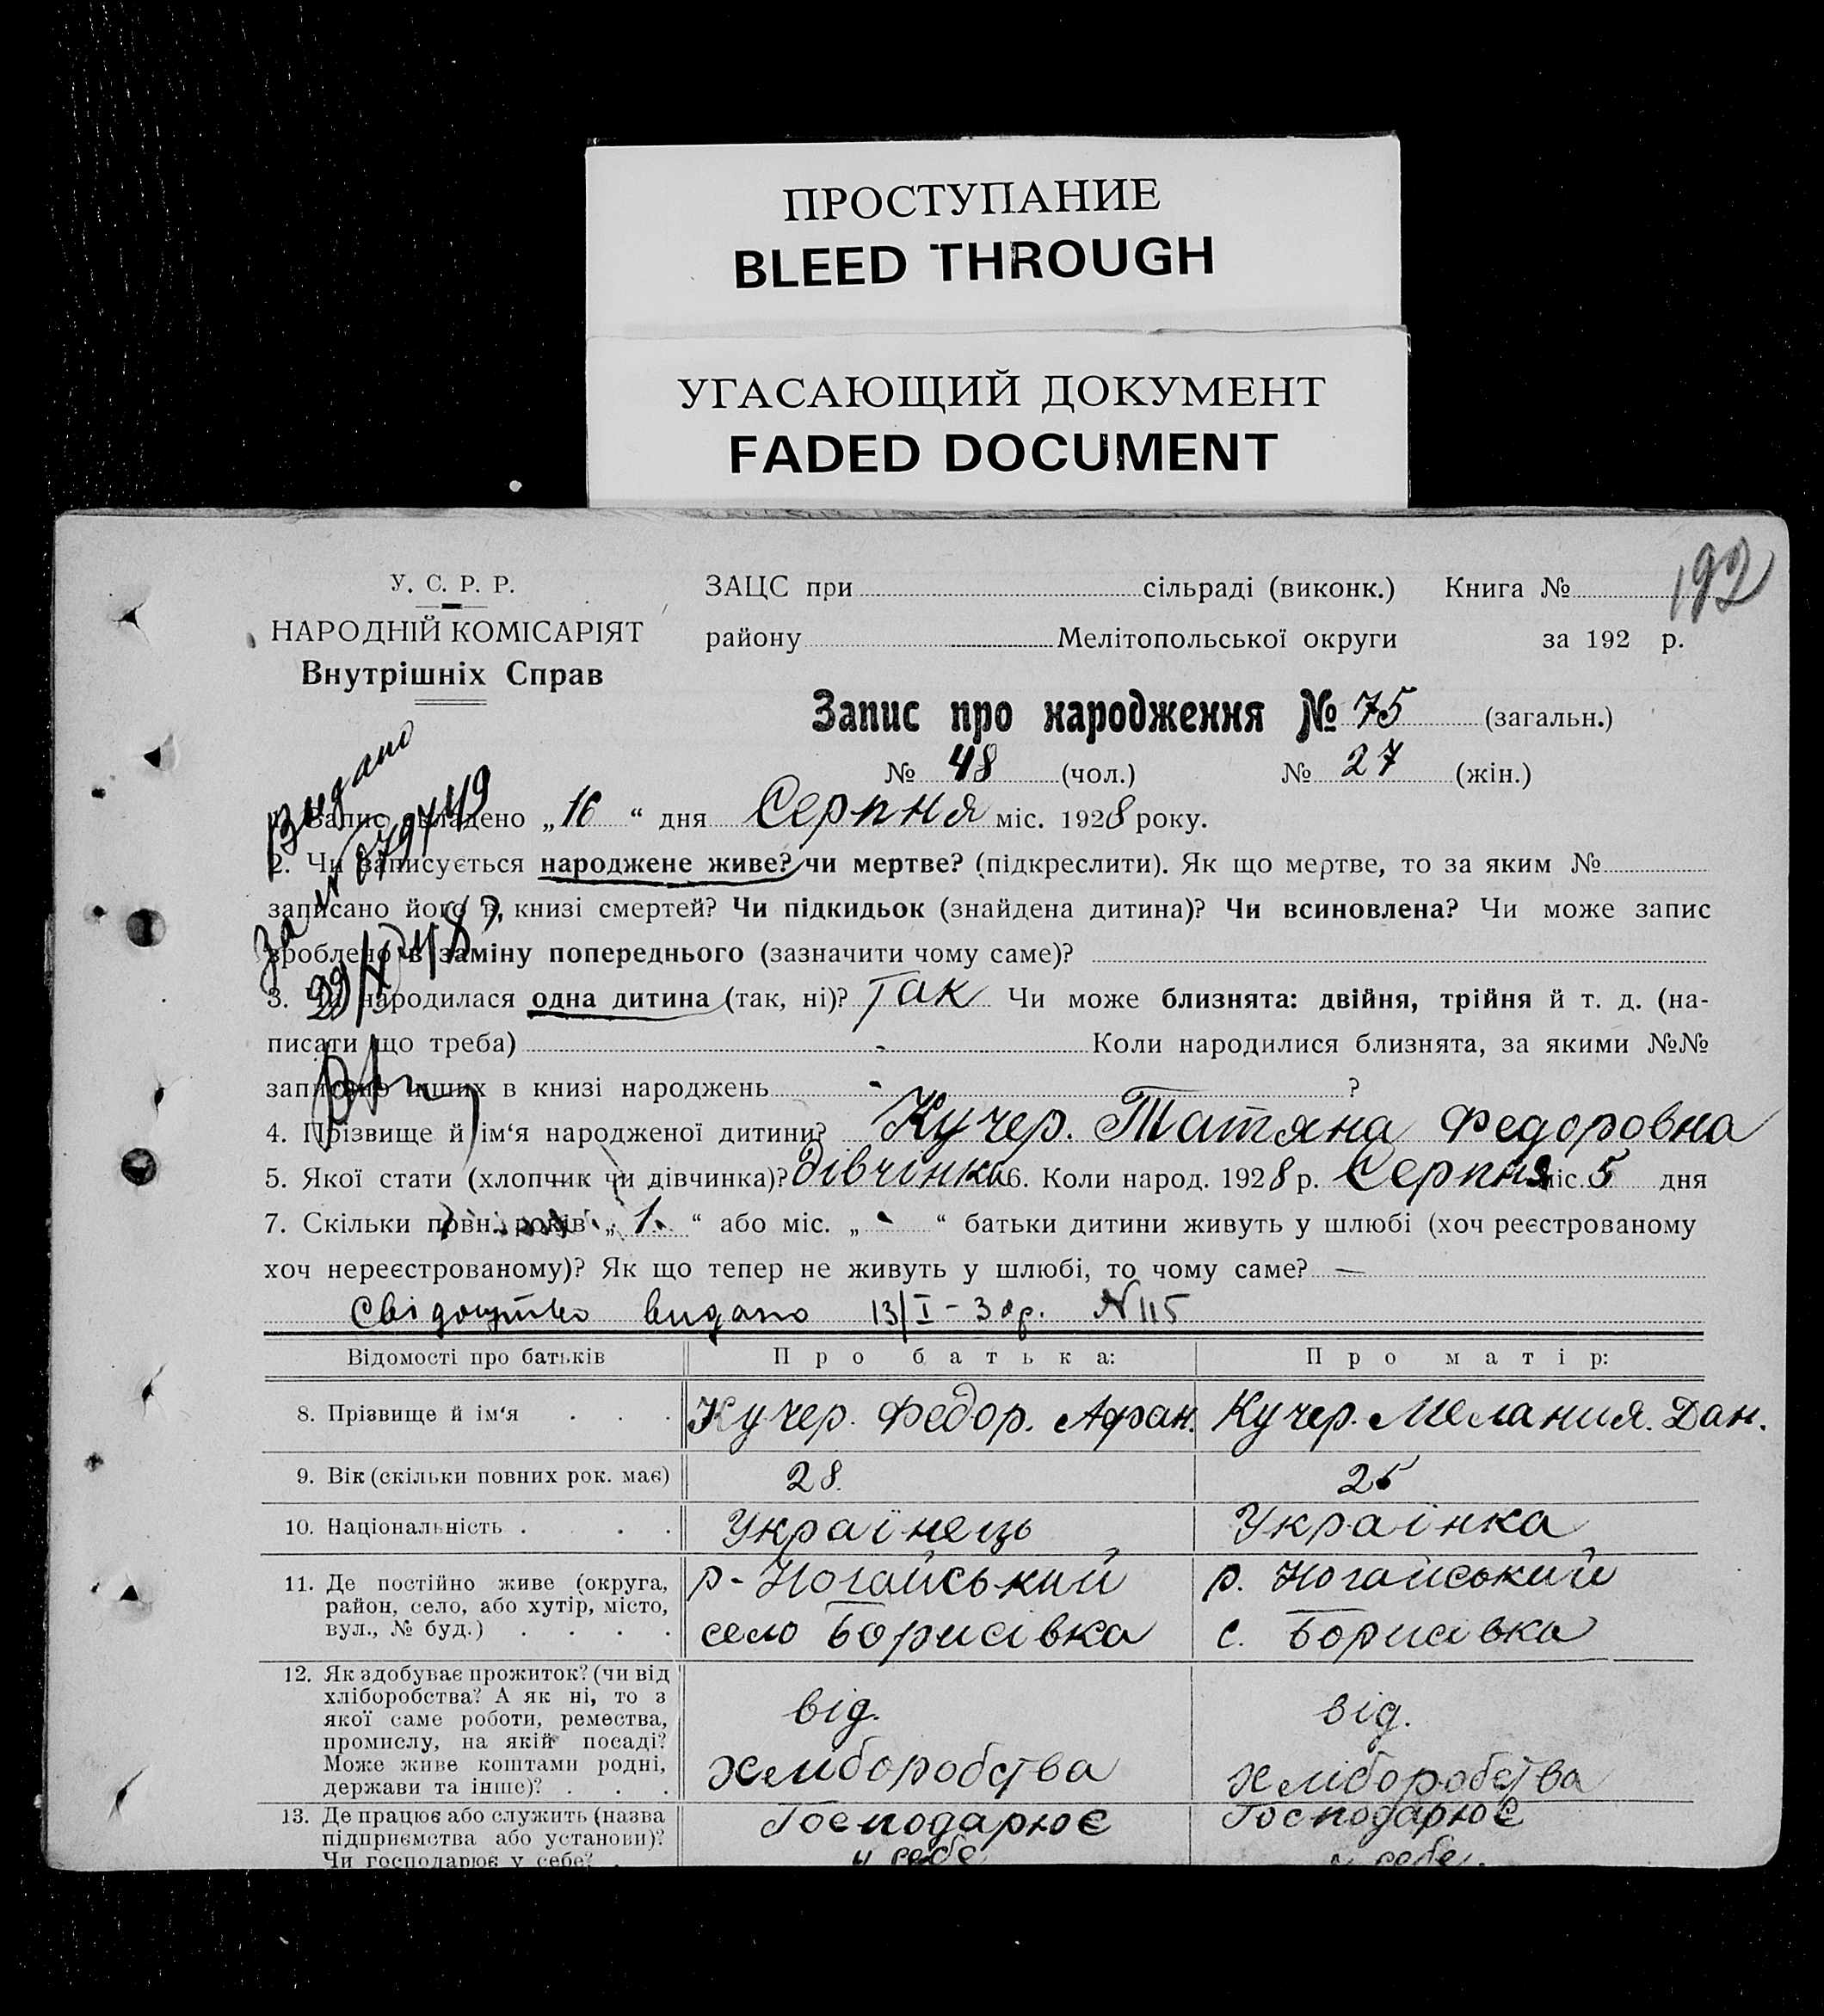 ПРОСТУПАНИЕ
BLEED THROUGH
УГАСАЮЩИЙ ДОКУМЕНТ
FADED DOCUMENT
192
У. С. Р. Р.
НАРОДНІЙ КОМІСАРІЯТ
Внутрішніх Справ
ЗАЦС при сільраді (виконк.) Книга №
району Мелітопольської округи за 192 р.
Запис про народження № 75 (загальн.)
№ 48 (чол.) № 27 (жін.)
Видано
1. Запис складено „16“ дня Серпня міс. 1928 року.
2. Чи записується народжене живе? чи мертве? (підкреслити). Як що мертве, то за яким №
записано його в книзі смертей? Чи підкидьок (знайдена дитина)? Чи всиновлена? Чи може запис
зроблено в заміну попереднього (зазначити чому саме)?
3. Чи народилася одна дитина (так, ні)? Так Чи може близнята: двійня, трійня й т. д. (на-
писати що треба) - Коли народилися близнята, за якими №№
записано інших в книзі народжень - ?
4. Прізвище й ім‘я народженої дитини? Кучер. Татяна Федоровна
5. Якої стати (хлопчик чи дівчинка)? дівчінка 6. Коли народ. 1928 р. Серпня міс. 5 дня
7. Скільки повн. років „1.“ або міс. „-“ батьки дитини живуть у шлюбі (хоч реєстрованому
хоч нереєстрованому)? Як що тепер не живуть у шлюбі, то чому саме? —
Свідоцтво видано 13/I-30р. N 115
Відомості про батьків Про батька: Про матір:
8. Прізвище й ім‘я . . . Кучер. Федор. Афан. Кучер. Мелания. Дан.
9. Вік (скільки повних рок. має) 28. 25
10. Національність . . . Українець Українка
11. Де постійно живе (округа,
район, село, або хутір, місто,
вул., № буд.) . . . .
р- Ногайський
село Борисівка
р. Ногайський
с. Борисівка
12. Як здобуває прожиток? (чи від
хліборобства? А як ні, то з
якої саме роботи, ремества,
промислу, на якій посаді?
Може живе коштами родні,
держави та інше)? . . .
від.
хлиборобства
від.
хліборобства
13. Де працює або служить (назва
підприємства або установи)?
Чи господарює у себе? .
Господарює
у себе
Господарює
у себе.